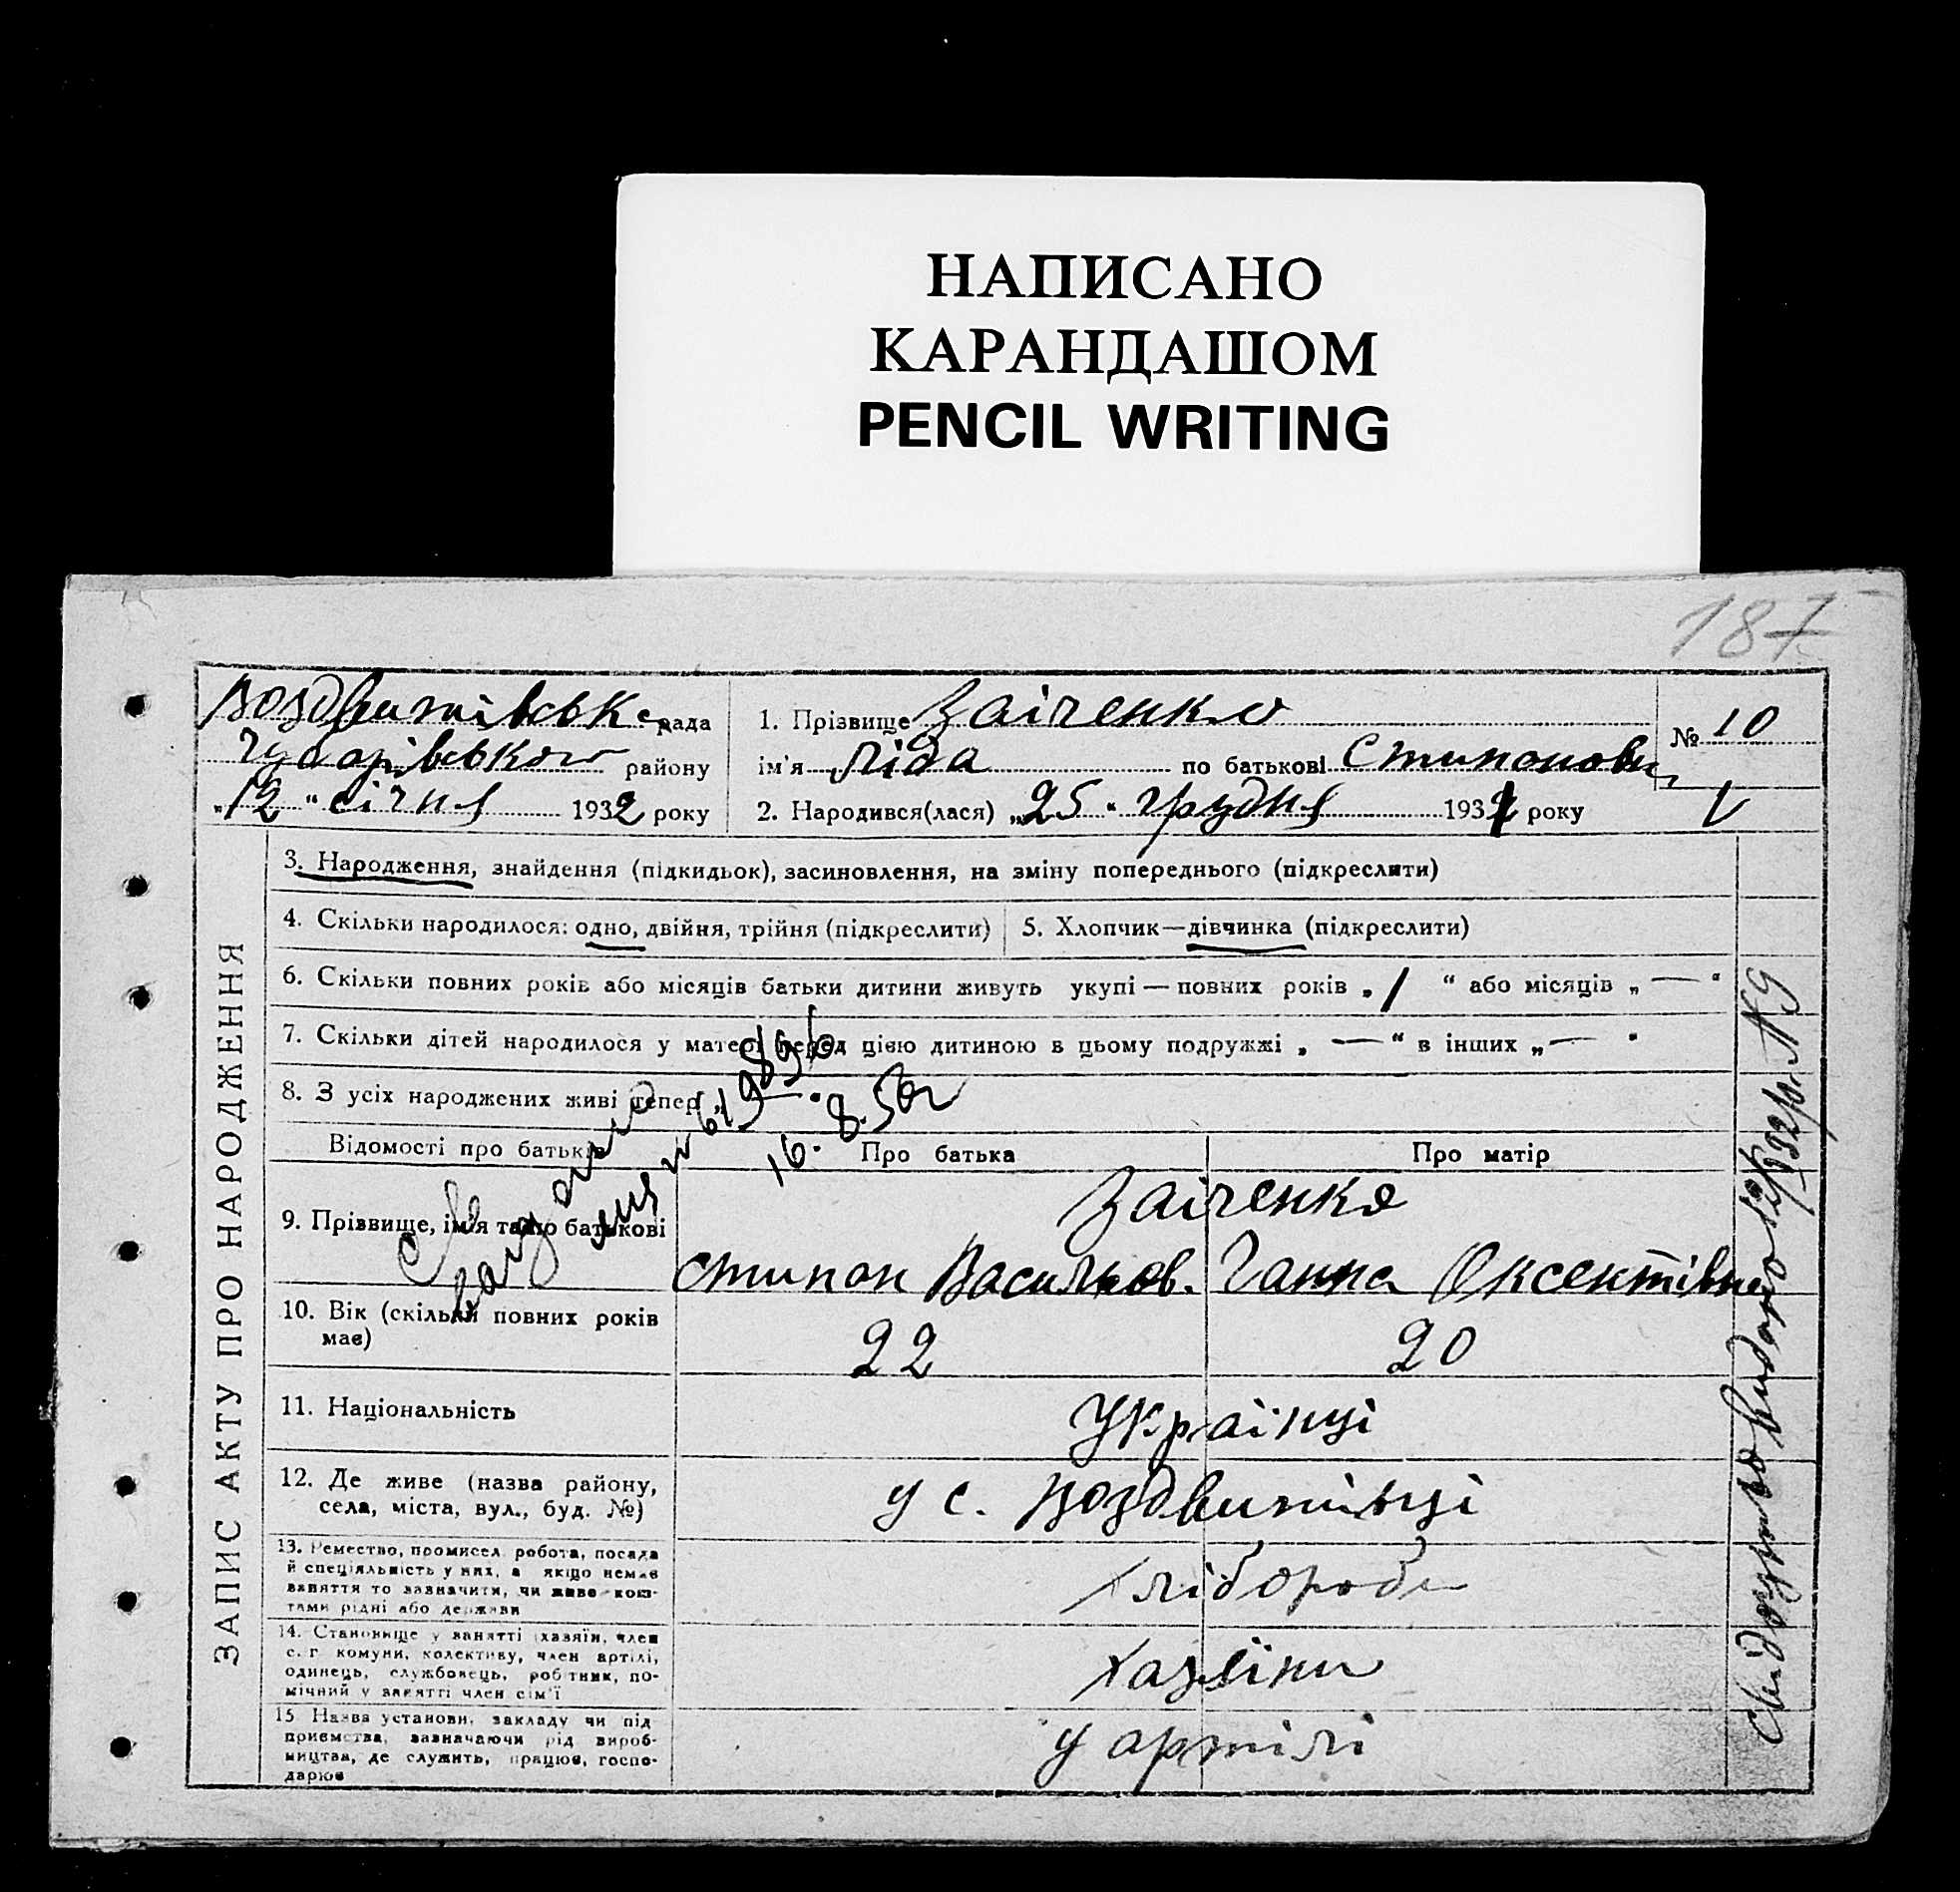 НАПИСАНО
КАРАНДАШОМ
PENCIL WRITING
187
рада
району
„12" січня 1932 року
1. Прізвище Заіченко
ім'я Ліда по батькові Стипонов
2. Народився(лася) „25" грудня 1931 року
№ 10
V
ЗАПИС АКТУ ПРО НАРОДЖЕННЯ
3. Народження, знайдення (підкидьок), засиновлення, на зміну попереднього (підкреслити)
4. Скільки народилося: одно, двійня, трійня (підкреслити)
5. Хлопчик—дівчинка (підкреслити)
6. Скільки повних років або місяців батьки дитини живуть укупі — повних років „1" або місяців „—"
7. Скільки дітей народилося у матері перед цією дитиною в цьому подружжі „—" в інших „—"
8. З усіх народжених живі тепер „—"
16.8.56г
Відомості про батьків
Про батька
Про матір
9. Прізвище, ім'я та по батькові
Заіченко
Стипон Васильов. Ганна Оксентівна
10. Вік (скільки повних років
має)
22
20
11. Національність
Українці
12. Де живе (назва району,
села, міста, вул., буд. №)
у с. Воздвиживці
13. Ремество, промисел, робота, посада
й спеціяльність у них, а якщо немає
заняття то зазначити, чи живе кош-
тами рідні або держави
хлібороби
14. Становище у занятті (хазяїн, член
с.г комуни, колективу, член артілі,
одинець, службовець, робітник, по-
мічний у занятті член сім'ї
хазяїни
15 Назва установи, закладу чи під-
приємства, зазначаючи рід вироб-
ництва, де служить, працює, госпо-
дарює
у артілі
видано 12/I 1932 р. №9